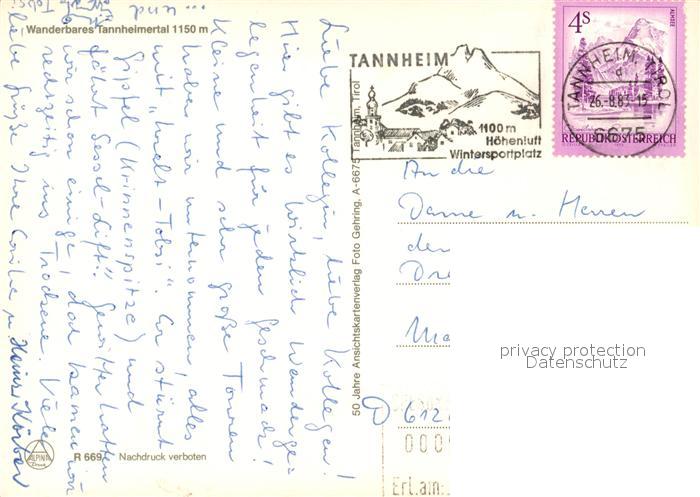 Wanderbares Tannheimertal 1150 m
Liebe Kollegin, liebe Kollegen!
Hier gibt es wirklich Wanderge-
legenheit für jeden Geschmack!
Kleine und sehr große Touren
haben wir unternommen, alles
mit "Hucki-Tobsi". Er stürmt
Gipfel (Krinnenspitze) und
fährt Sessel-Lift". Gewitter hatten
wir schon einige, doch kamen wir
rechtzeitig ins Trockene. Viele
liebe Grüße Ihre u. Heinz Körber
... und
R 669 Nachdruck verboten
ALPINA
Druck
50 Jahre Ansichtskartenverlag Foto Gehring, A-6675 Tannheim, Tirol
TANNHEIM
1100 m
Höhenluft
Wintersportplatz
4S
ALMSEE
REPUBLIK ÖSTERREICH
TANNHEIM, TIROL
26.-8.83-15
6675
An die
Damen u. Herren
der
Dre
Ma
D 612
000
Erl.am:
privacy protection
Datenschutz